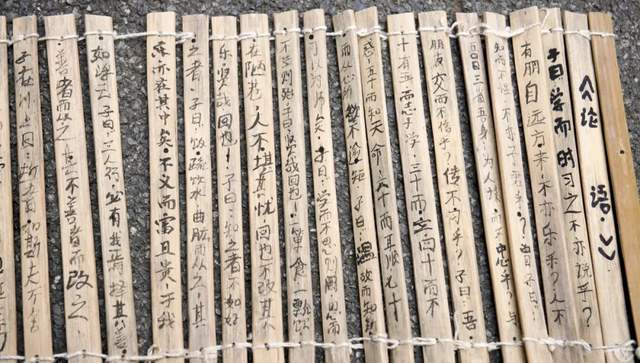 《论语》
子曰:学而时习之,不亦说乎?
有朋自远方来,不亦乐乎?人不
知而不愠,不亦君子乎?曾子曰:
吾日三省吾身:为人谋而不忠乎?与
朋友交而不信乎?传不习乎?子曰:吾
十有五而志于学,三十而立,四十而不
惑,五十而知天命,六十而耳顺,七十
而从心所欲,不逾矩。子曰:温故而知新
可以为师矣。子曰:学而不思则罔,思而
不学则殆。子曰:贤哉回也!一箪食,一瓢饮
在陋巷,人不堪其忧,回也不改其
乐,贤哉回也!子曰:知之者不如好
之者,子曰:饭疏饮水,曲肱而从之,其
乐亦在其中矣,不义而富且贵,于我
如浮云。子曰:三人行,必有我师焉,择其
善者而从之,其不善者而改之。
子在川上曰:逝者如斯夫